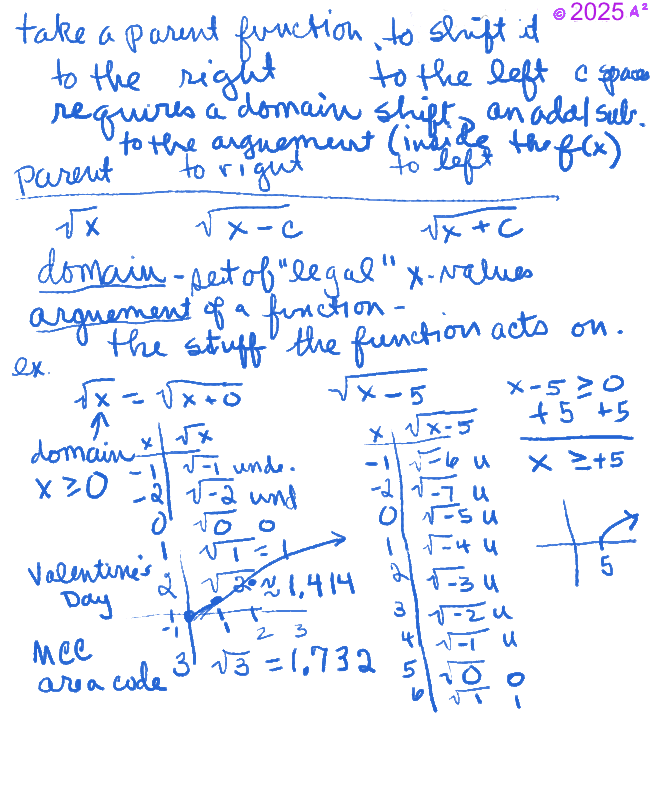 © 2025 A²
take a parent function, to shift it
to the right to the left c spaces
requires a domain shift, an add/sub.
to the arguement (inside the f(x)
parent to right to left
√x √x-c √x+c
domain - set of "legal" x-values
arguement of a function -
the stuff the function acts on.
ex.
√x = √x+0 √x-5 x-5 ≥ 0
+5 +5
x ≥ +5
domain
x ≥ 0
x √x
-1 √-1 und.
-2 √-2 und
0 √0 0
1 √1 = 1
2 √2 ≈ 1.414
3 √3 = 1.732
Valentine's
Day
MCC
area code
-1 1 2 3
x √x-5
-1 √-6 u
-2 √-7 u
0 √-5 u
1 √-4 u
2 √-3 u
3 √-2 u
4 √-1 u
5 √0 0
6 √1 1
5